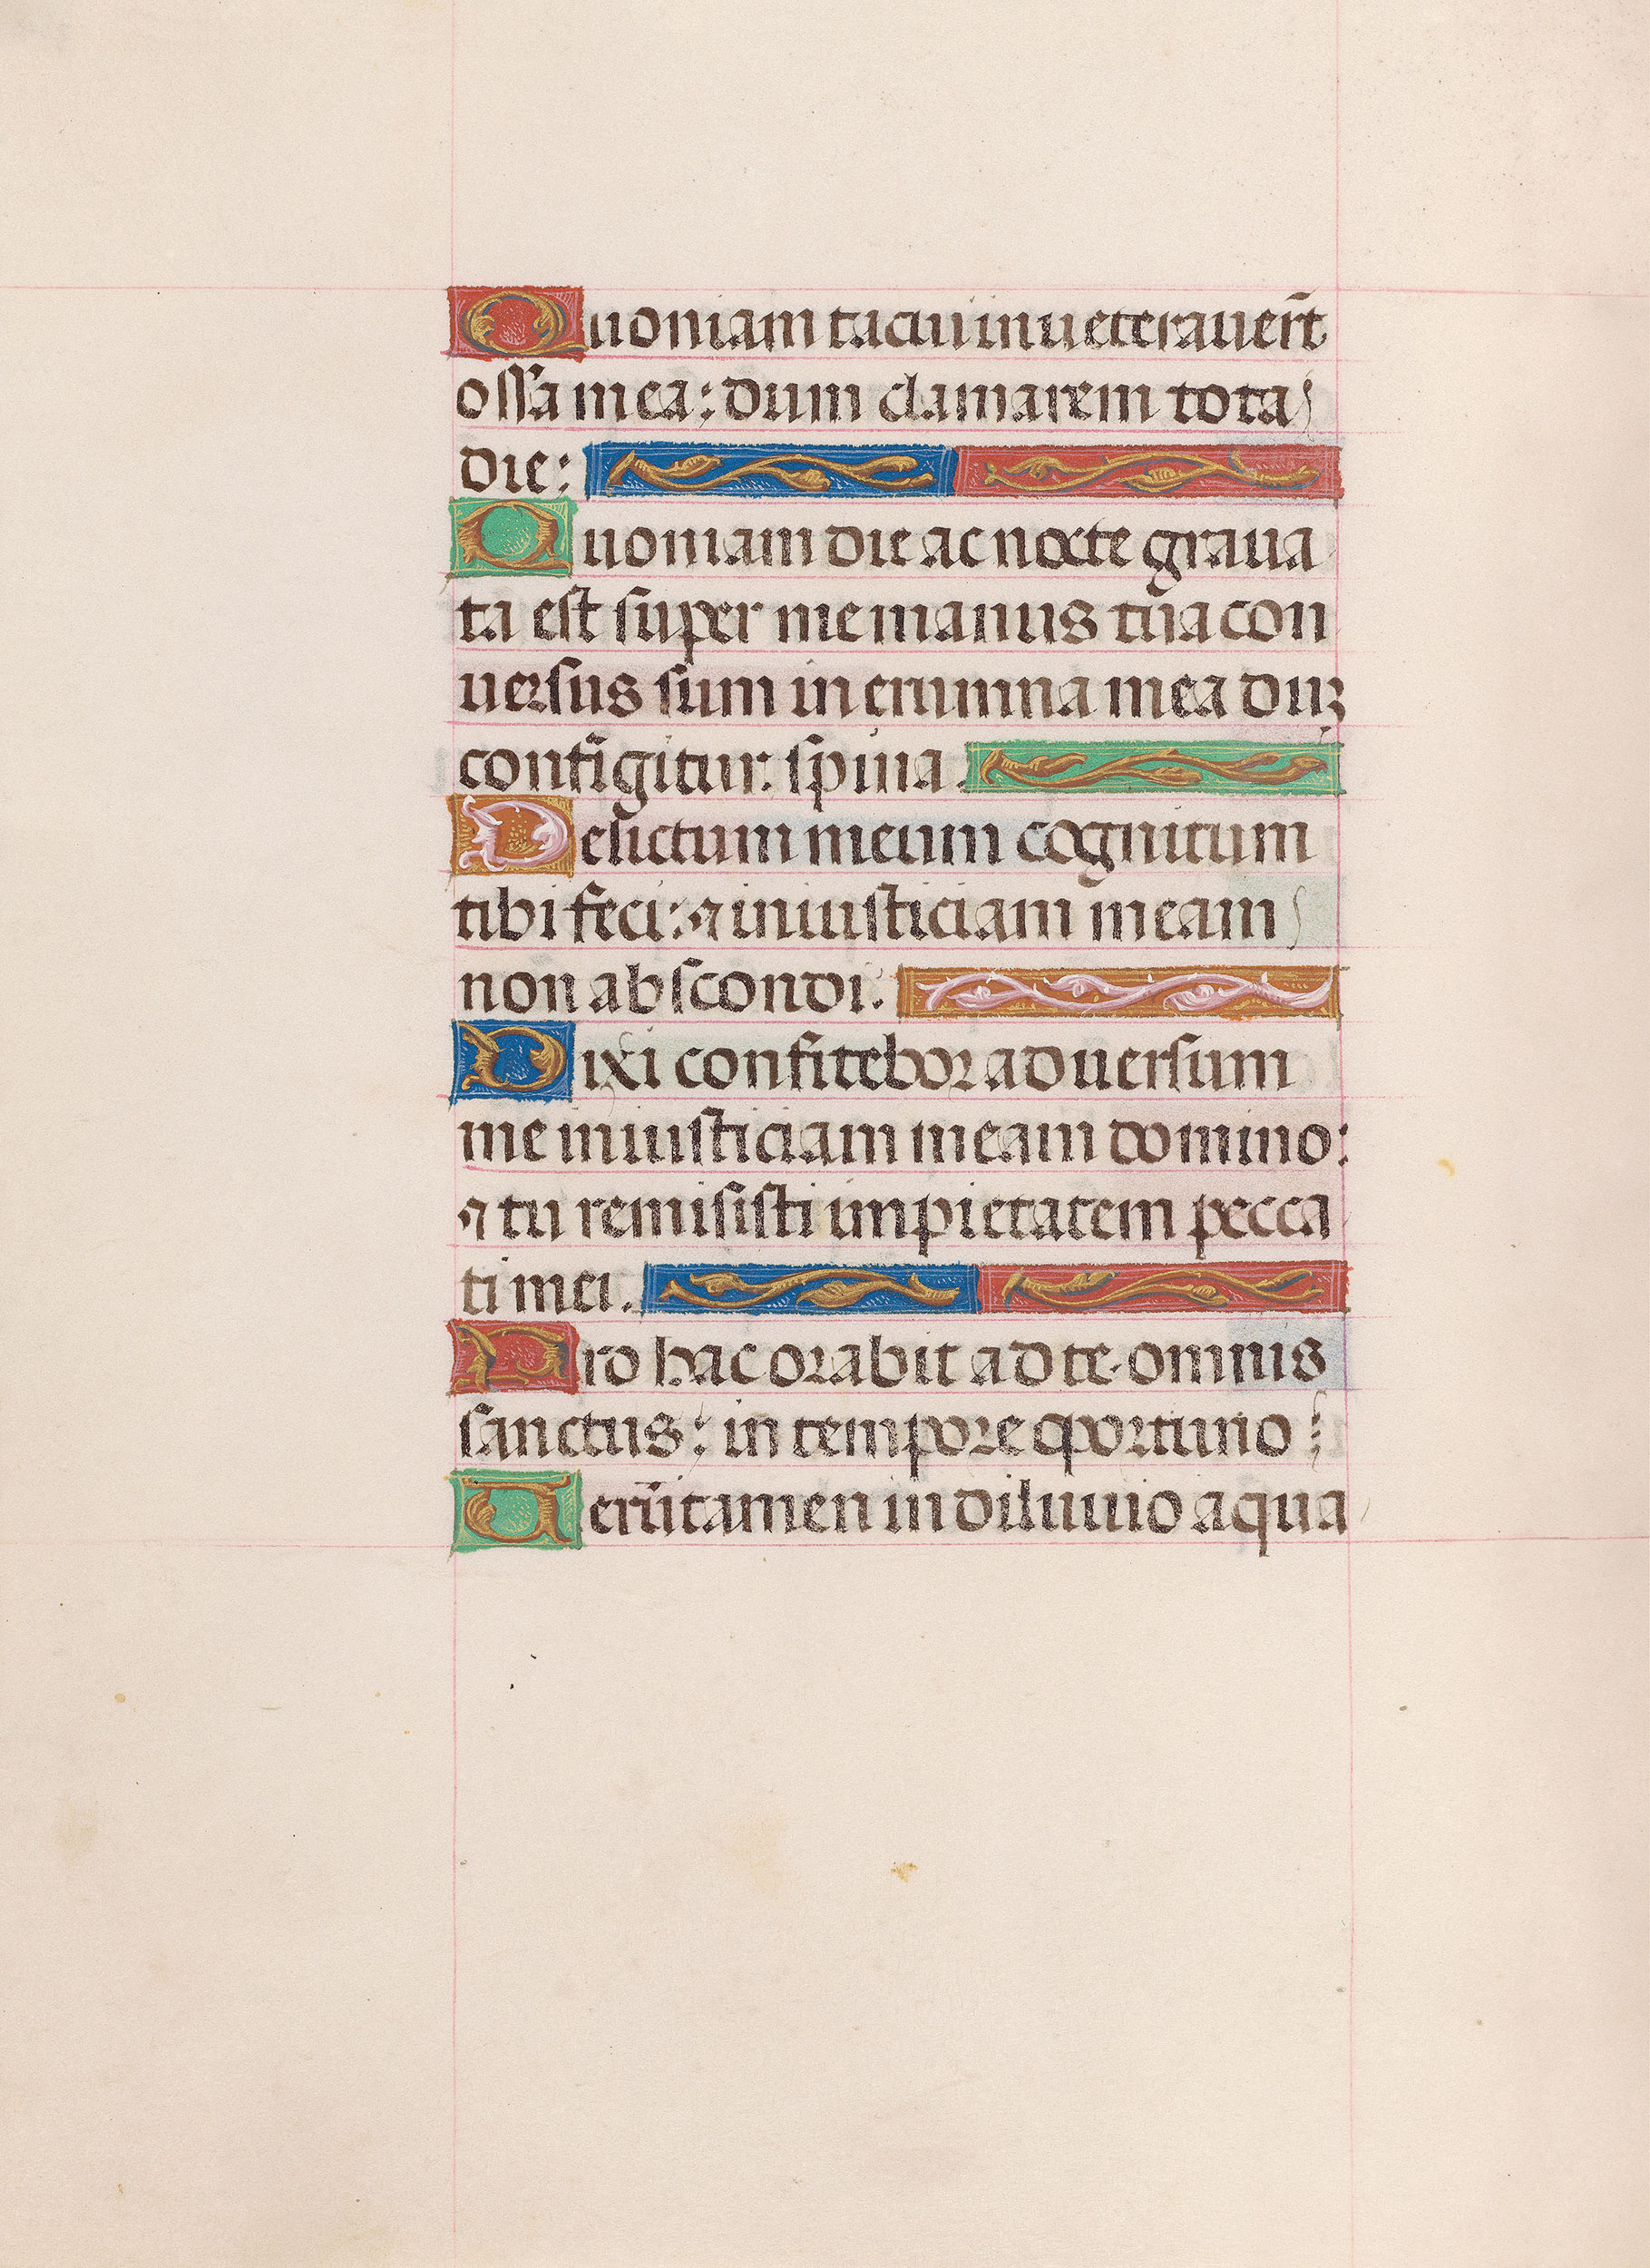 Quoniam tacui inueterauer̃t
ossa mea: dum clamarem tota
die:
Quoniam die ac nocte graua
ta est super me manus tua con
uersus sum in erumna mea duꝫ
confīgitur spina.
Delictum meum cognitum
tibi feci: ⁊ iniusticiam meam
non abscondi.
Dixi confitebor aduersum
me iniusticiam meam domino:
⁊ tu remisisti impietatem pecca
ti mei.
Pro hac orabit ad te omnis
sanctus: in tempore oportuno:
Uerũtamen in diluuio aqua